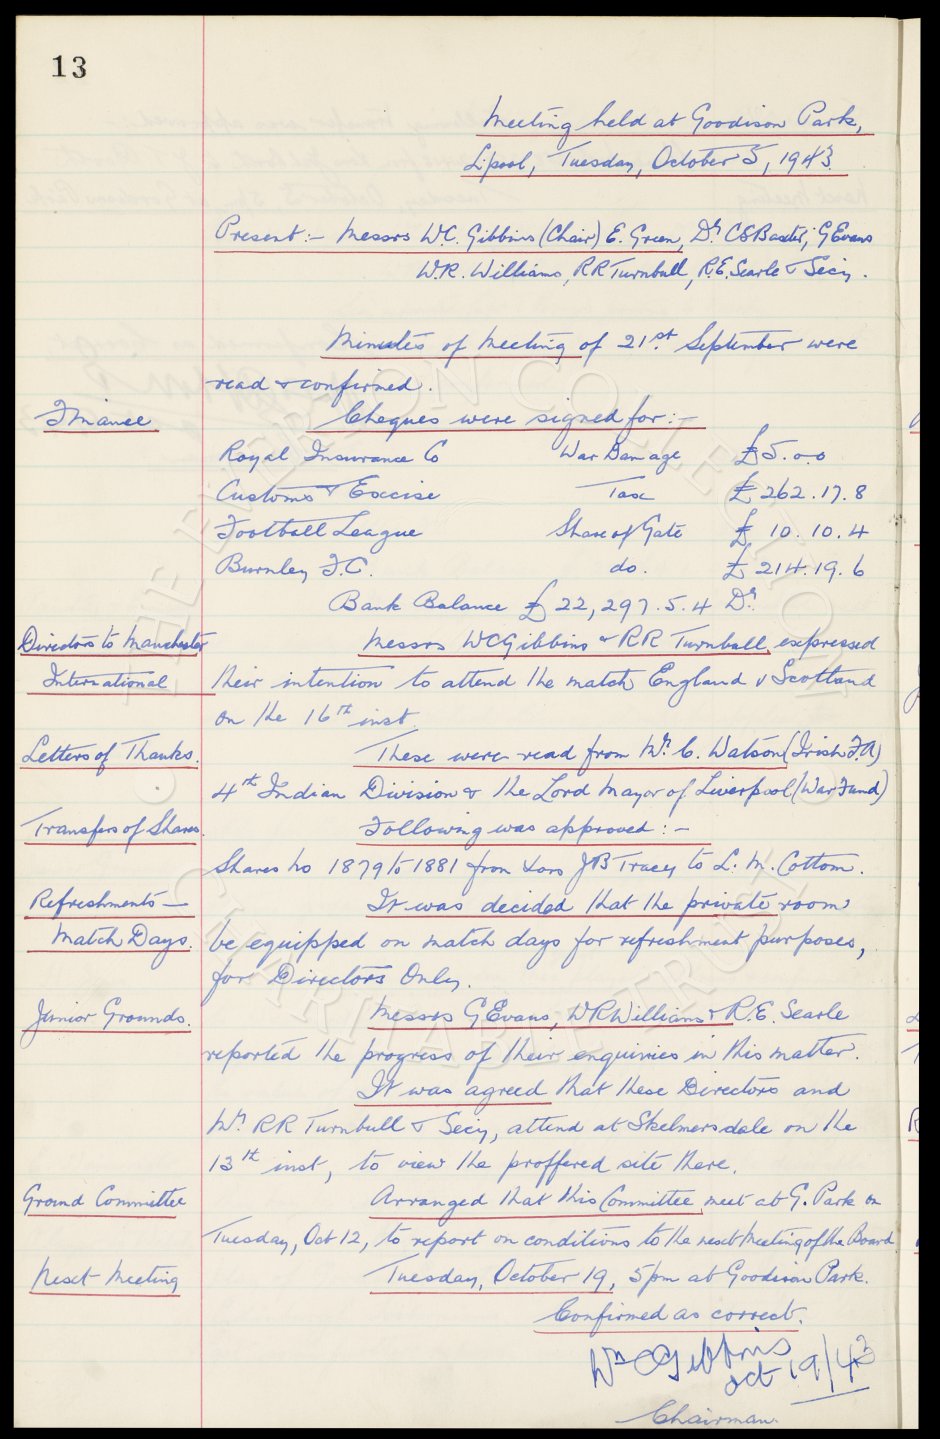 13
Meeting held at Goodison Park,
L'pool, Tuesday, October 5, 1943.
Present:- Messrs W.C. Gibbins (Chair) E. Green, Dr. C S Baxter, G Evans
W.R. Williams, R R Turnbull, R.E. Searle & Secy.
Minutes of Meeting of 21st. September were
read & confirmed.
Finance Cheques were signed for:-
Royal Insurance Co War Damage £5.0.0
Customs & Excise Tax £262.17.8
Football League Share of Gate £10.10.4
Burnley F.C. do. £214.19.6
Bank Balance £22,297.5.4 Dr.
Directors to Manchester Messrs W C Gibbins & R R Turnbull, expressed
International their intention to attend the match England v Scotland
on the 16th inst.
Letters of Thanks. These were read from Mr. C. Watson (Irish F.A)
4th Indian Division & the Lord Mayor of Liverpool (War Fund)
Transfers of Shares. Following was approved:-
Shares No 1879 to 1881 from Exors J B Tracey to L. M. Cottom.
Refreshments — It was decided that the private room
Match Days. be equipped on match days for refreshment purposes,
for Directors Only.
Junior Grounds. Messrs G Evans, W R Williams & R.E. Searle
reported the progress of their enquiries in this matter.
It was agreed that these Directors and
Mr. R R Turnbull & Secy, attend at Skelmersdale on the
13th inst, to view the proffered site there.
Ground Committee Arranged that this Committee meet at G. Park on
Tuesday, Oct 12, to report on conditions to the next Meeting of the Board
Next Meeting Tuesday, October 19, 5pm at Goodison Park.
Confirmed as correct.
Wm C Gibbins
Oct 19/43
Chairman.
THE EVERTON COLLECTION
CHARITABLE TRUST